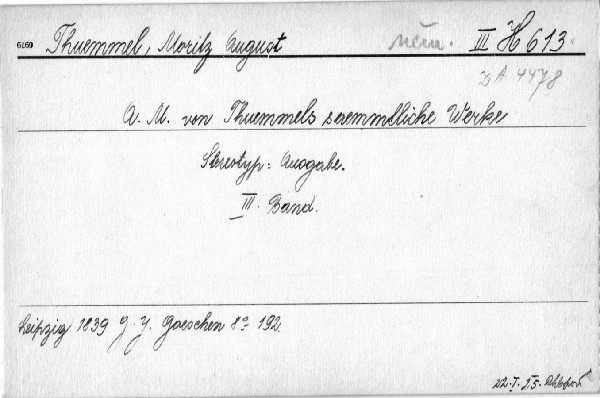 6269 Thuemmel, Moritz August něm. III H 613.
DA 4478
A. M. von Thuemmels saemmtliche Werke
Stereotyp: Ausgabe.
III. Band.
Leipzig 1839 G. J. Goeschen 8º 192
22-I-25.